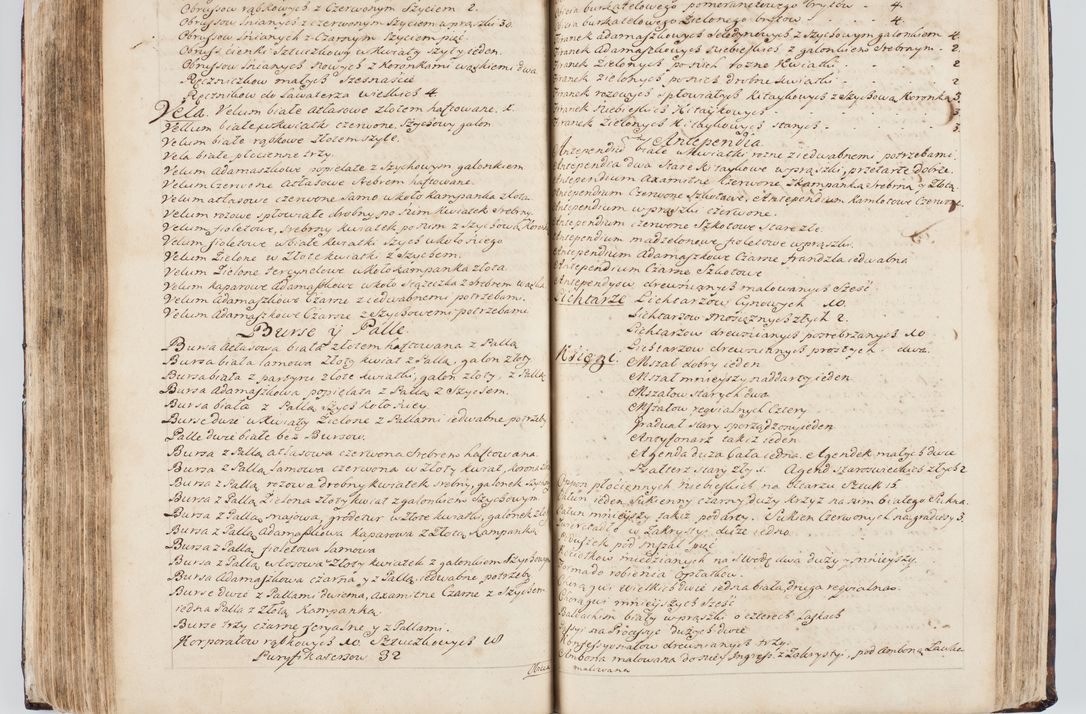 Obrusow rąbkowych z Czerwonym Szyciem 2.
Obrusow Lnianych z czerwonym Szyciem w prąszki 30.
Obrusow Lnianych z Czarnym Szyciem pięć
Obrus cienki Sztuczkowy w Kwiaty Szyty ieden.
Obrusow Lnianych Nowych z Koronkami wąskiemi dwa
Ręczniczkow małych Szesnaście
Ręcznikow do Lawaterza wielkich 4
Vela. Velum białe Atlasowe złotem haftowane. 1.
Velum białe w kwiatki czerwone, Szychowy galon
Velum białe rąbkowe Złotem Szyte.
Vela białe płocienne trzy.
Velum Adamaszkowe popielate z Szychowym galonkiem
Velum Czerwone Atłasowe Srebrem haftowane.
Velum atłasowe czerwone Samo w koło kampanka złota
Velum rozowe spłowiałe drobny po nim kwiatek Srebrny.
Velum fioletowe, Srebrny kwiatek po nim z Szychową Koronką
Velum fioletowe w białe kwiatki Szych w koło niego
Velum Zielone w Złote kwiatki z Szychem.
Velum Zielone Tercynelowe w koło kampanka złota
Velum kaparowe Adamaszkowe w koło Stążeczka z Srebrem wąska
Velum Adamaszkowe Czarne z iedwabnemi potrzebami.
Velum Adamaszkowe Czarne z Szychowemi potrzebami
Burse ÿ Palle.
Bursa Atłasowa biała złotem haftowana z Pallą
Bursa biała lamowa złoty kwiat z Pallą, galon złoty
Bursa biała z partyru złote kwiatki, galon złoty, z Pallą
Bursa Adamaszkowa popielata z Pallą z Szychem.
Bursa biała z Pallą Szych koło niey
Burse dwie w kwiaty Zielone z Pallami iedwabne potrzeby
Palle dwie białe bez Bursow.
Bursa z Pallą atłasowa czerwona Srebrem haftowana
Bursa z Pallą lamowa czerwona w złoty kwiat, korona
Bursa z Pallą rozowa drobny kwiatek srebrny, galonek Szychowy
Bursa z Pallą Zielona złoty kwiat z galonkiem Szychowym.
Bursa z Pallą maiowa, grodetur w złote kwiatki, galonek złoty
Bursa z Pallą Adamaszkowa kaparowa z Złotą Kampanką
Bursa z Pallą fioletowa lamowa
Bursa z Pallą włosowa złoty kwiatek z galonkiem Szychowym
Bursa Adamaszkowa czarna y z Pallą iedwabne potrzeby
Burse dwie z Pallami dwiema, axamitne Czarne z Szychem
iedna Palla z złotą Kampanką
Burse trzy czarne feryalne y z Pallami.
Korporałow rąbkowych 10 Sztuczkowych 18
Puryfikaterzow 32
Obicia
Obicia burkatelowego pomorańczowego brytow . 4.
Obicia burkatelowego Zielonego brytow . 4.
Franek Adamaszkowych Seledynowych z Szychowym galonkiem 4
Franek Adamaszkowych niebieskich z galonkiem Srebrnym . 2
Franek Zielonych po nich rożne kwiatki . 2
Franek zielonych po nich drobne kwiatki . 2
Franek rozowych spłowiałych kitaykowych z Szychową Koronką 3.
Franek niebieskich kitaykowych . 3.
Franek Zielonych kitaykowych starych . 3.
Antependia.
Antependium białe w kwiatki rożne z iedwabnemi potrzebami.
Antependia dwa stare kitaykowe w prąszki, przetarte dobrze.
Antependium axamitne Czerwone z kampanką Srebrną y złotą
Antependium Czerwone Szkotowe, Antependium kamlotowe Czerwone
Antependium w prąszki czerwone.
Antependium czerwone Szkotowe stare złe.
Antependium madzelonowe fioletowe w prąszki.
Antependium Adamaszkowe Czarne frandzla iedwabna
Antependium Czarne Szkotowe
Antependyow drewnianych malowanych Sześć
Lichtarze Lichtarzow Cynowych 10.
Lichtarzow Mosiężnych złych 2.
Lichtarzow drewnianych posrebrzanych 10
Lichtarzow drewnianych prostych dwa.
Księgi. Mszał dobry ieden
Mszał mnieyszy naddarty ieden
Mszałow starych dwa
Mszałow requialnych Cztery
Graduał stary sporządzony ieden
Antyfonarz takiż ieden
Agenda duża biała iedna. Agendek małych dwie
Psałterz stary zły 1. Agend staroświeckich złych 2
Opon płociennych niebieskich na Ołtarzu Sztuk 15
Całun ieden sukienny czarny duży krzyż na nim białego Sukna.
Całun mnieyszy takiż podarty. Sukien Czerwonych na gradusy 3.
Zwierciadło w Zakrystyi duże iedno
Poduszek pod Mszał pięć
Kociołkow miedzianych na Swięconą wodę dwa duży y mnieyszy.
Forma do robienia opłatkow.
Chorągwi wielkich dwie iedna biała, druga requialna.
Chorągwi mnieyszych Sześć
Baldachim biały w prąszki o czterech Laskach
na Processye dużych dwie
Konfessyonałow drewnianych trzy.
Ambona malowana do niey Ingress z Zakrystyi, pod Amboną Ławka
malowana